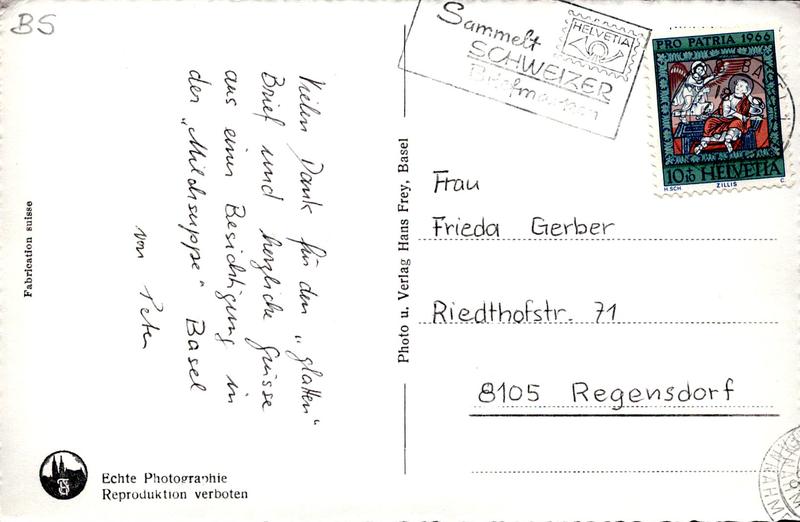 BS
Vielen Dank für den „glatten“
Brief und herzliche Grüsse
aus einer Besichtigung in
der „Milchsuppe“ Basel
von Peter
Fabrication suisse
Echte Photographie
Reproduktion verboten
Photo u. Verlag Hans Frey, Basel
Sammelt
SCHWEIZER
Briefmarken
HELVETIA
PRO PATRIA 1966
10+10 HELVETIA
H.SCH. ZILLIS C.
Frau
Frieda Gerber
Riedthofstr. 71
8105 Regensdorf